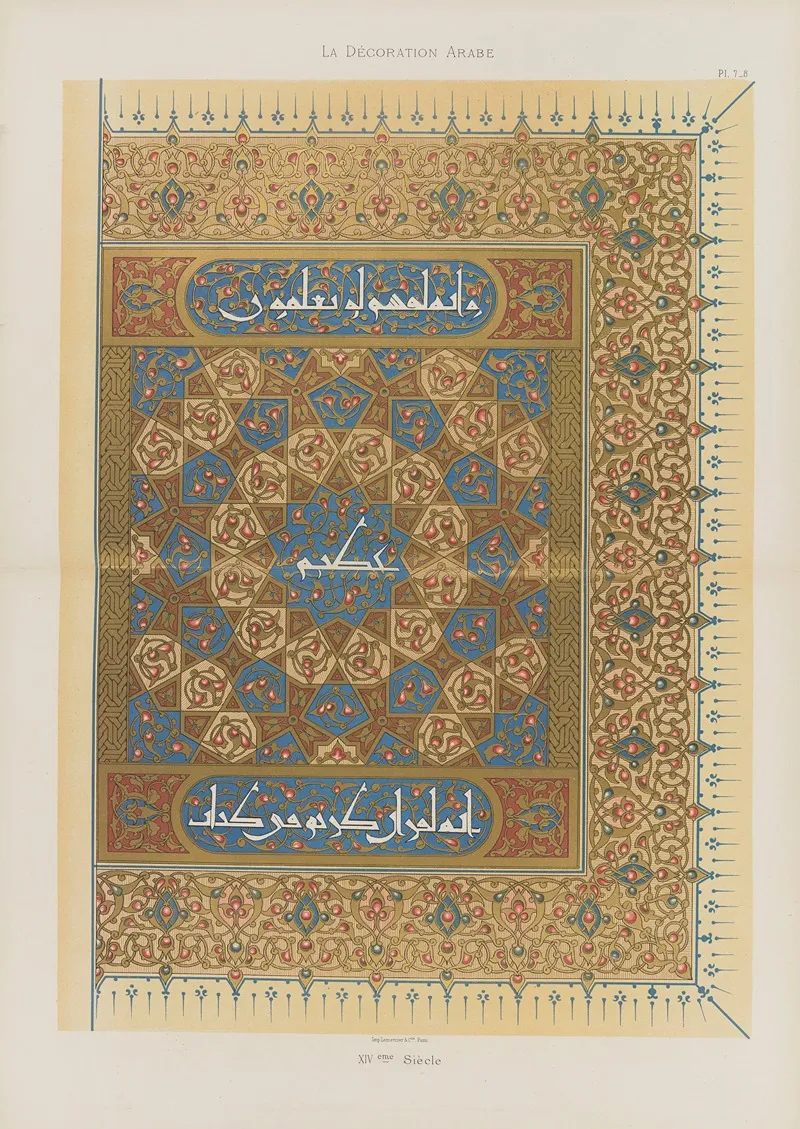 LA DÉCORATION ARABE
Pl. 7_8
وانه لقسم لو تعلمون
عظيم
انه لقران كريم في كتاب
Imp. Lemercier & Cie. Paris
XIVeme Siècle